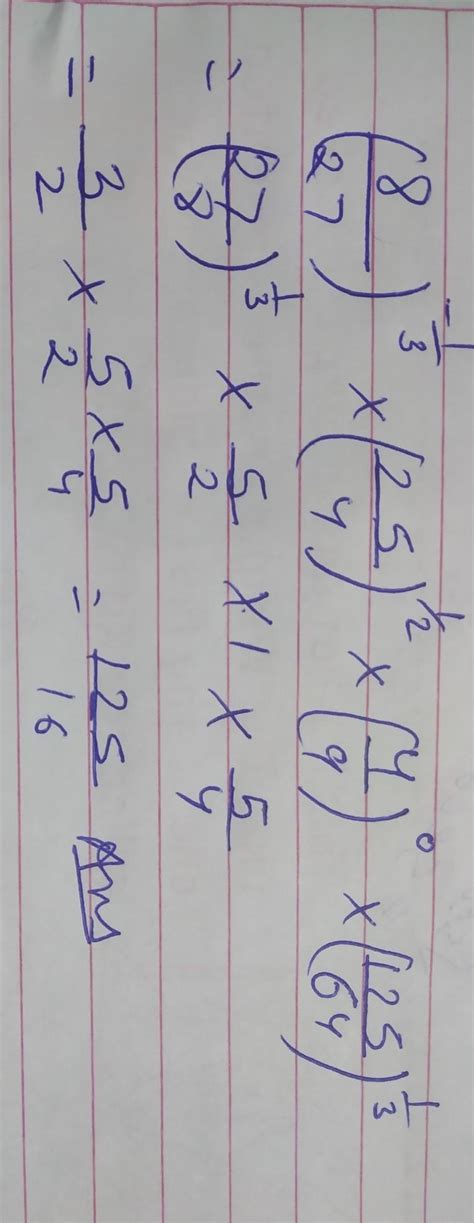 (8/27)^-1/3 × (25/4)^1/2 × (4/9)^0 × (125/64)^1/3
= (27/8)^1/3 × 5/2 × 1 × 5/4
= 3/2 × 5/2 × 5/4 = 125/16 Ans